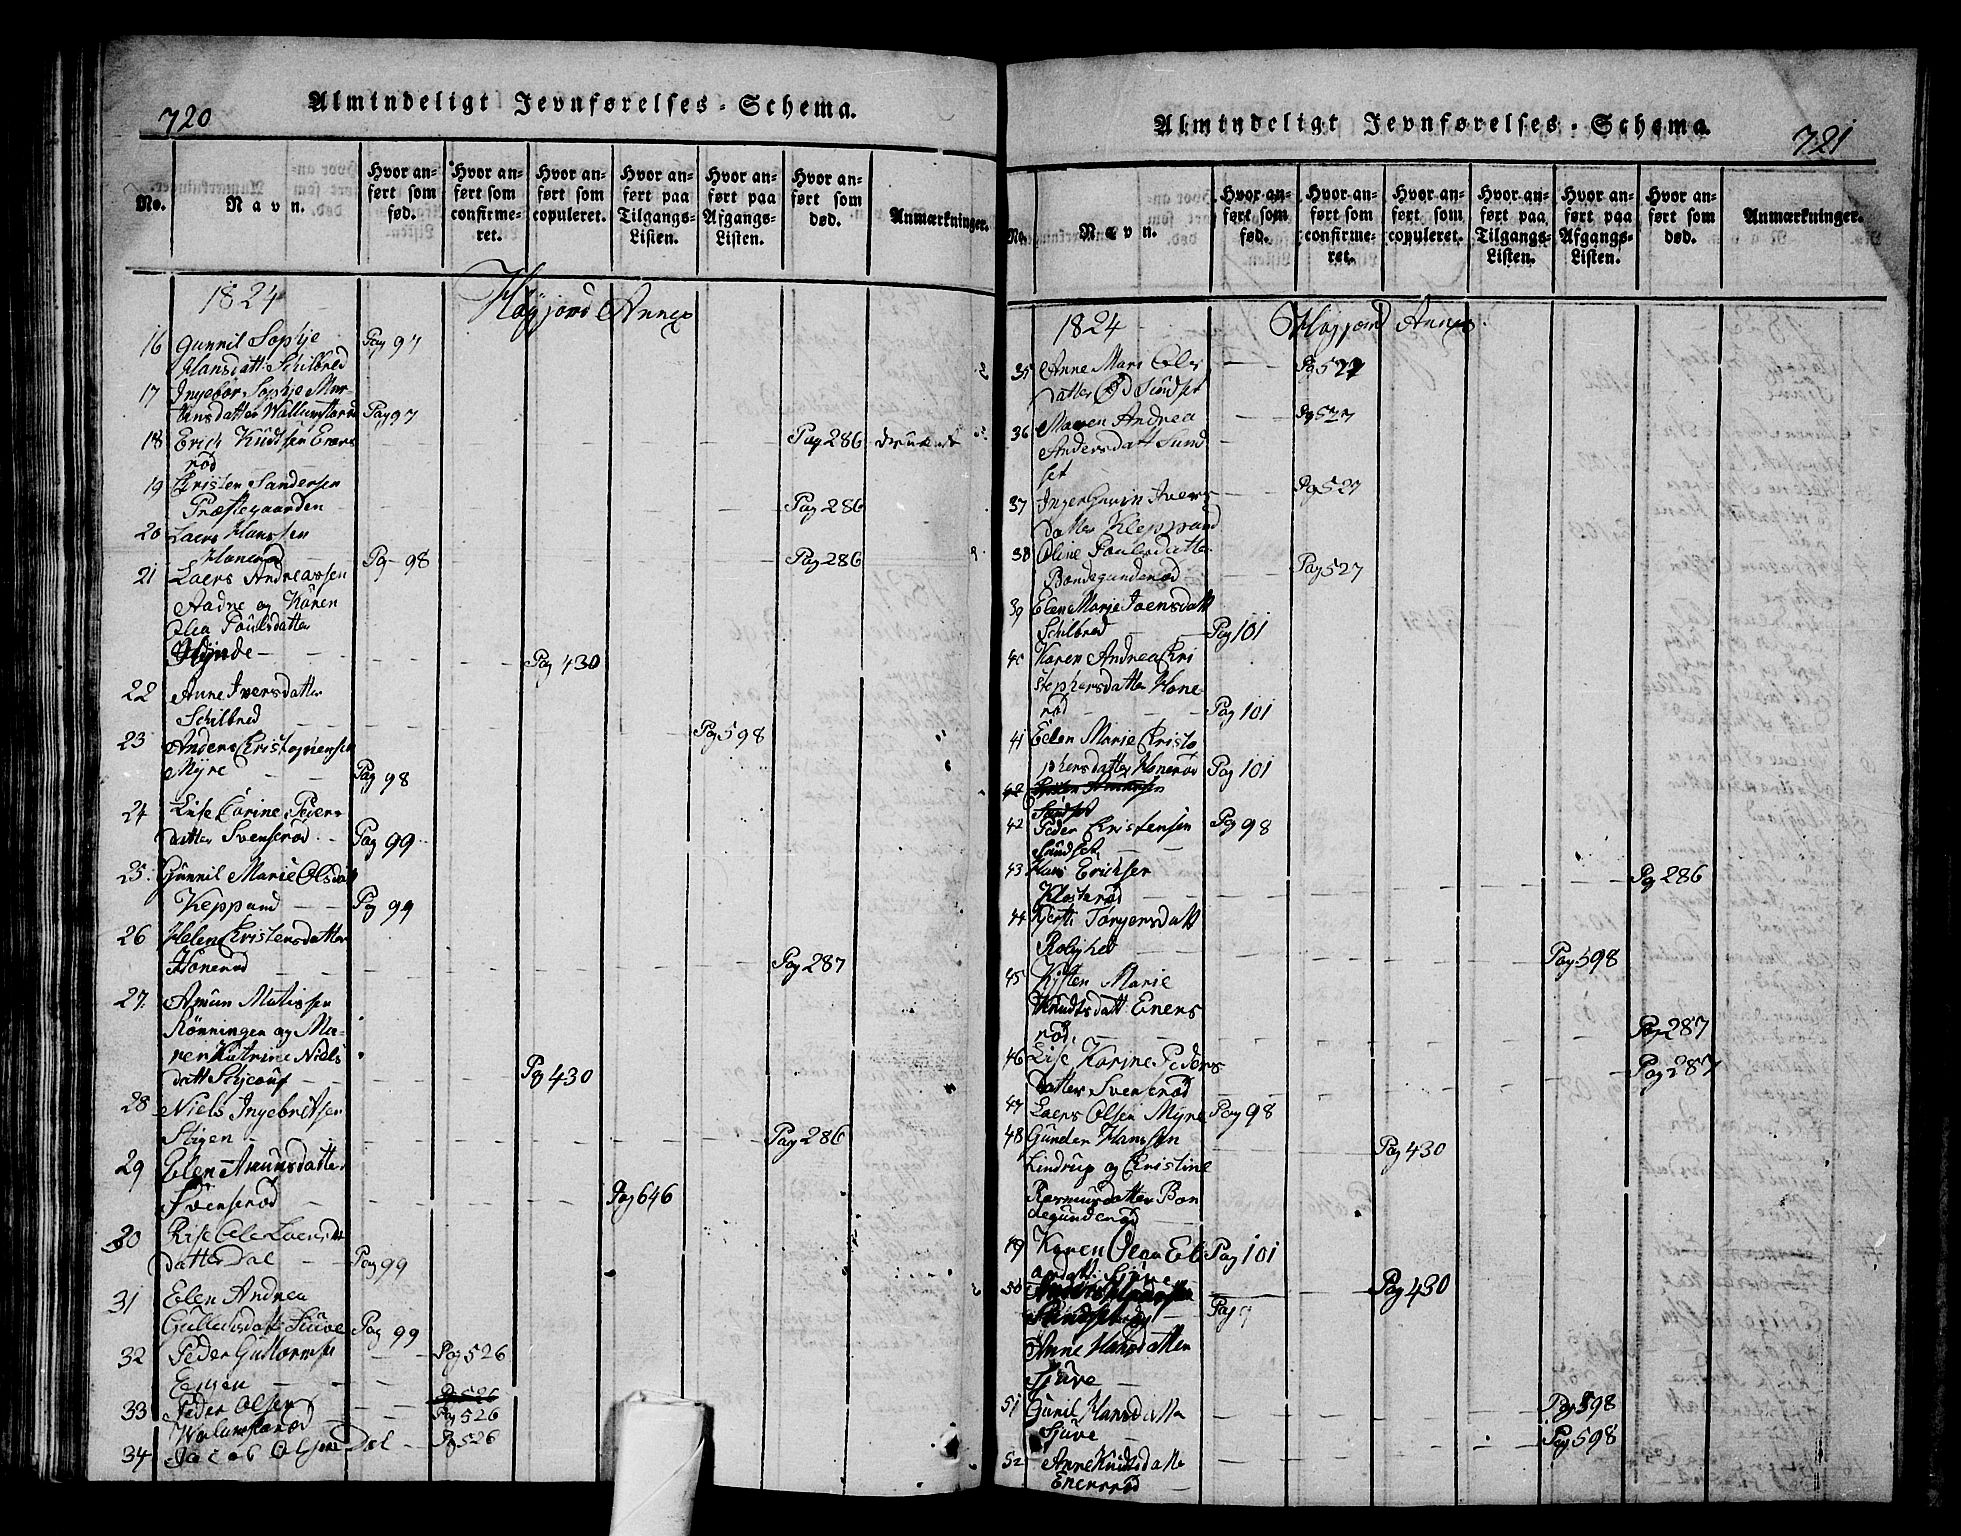 720
Almindeligt Jevnførelses-Schema.
No. Navn. Hvor anført som fød. Hvor anført som confirmeret. Hvor anført som copuleret. Hvor anført paa Tilgangs-Listen. Hvor anført paa Afgangs-Listen. Hvor anført som død. Anmærkninger.
1824 Høyjord Annex
16 Gunnil Sophje Pag 97
Hansdatt: Schilbred
17 Ingebor Sophje Mar
tinsdatter Pag 97
18 Erich Knudsen Eners Pag 286
rød
19 Christen Sandersen
Præstegaarden Pag 286
20 Laers Hanssen
Honerød Pag 98 Pag 286
21 Laers Andreassen
Aadne og Karen
Olea Poulsdatter
Pag 430
22 Anne Iversdatter
Schilbred Pag 598
23 Anders
Myre Pag 98
24 Lise Carine Peders
datter Svenserød Pag 99
25 Gunnil Marie Olsdatt
Keppand Pag 99
26 Helene Christensdatter
Honerød Pag 287
27 Amun Matissen
Rønningen og Ma-
ren Katrine Niels
datt Pag 430
28 Niels Ingebretsen
Stigen Pag 286
29 Elen Amunsdatter
Svenserød Pag 646
30 Laers
datter Dal Pag 99
31 Elen Andrea
Juve Pag 99
32 Peder Guttormse Pag 526
33 Peder Olsen Pag 526
Pag 526
34 Jacob Olsen Dal Pag 526
721
Almindeligt Jevnførelses-Schema.
No. Navn. Hvor anført som fød. Hvor anført som confirmeret. Hvor anført som copuleret. Hvor anført paa Tilgangs-Listen. Hvor anført paa Afgangs-Listen. Hvor anført som død. Anmærkninger.
1824 Høyjord Annex
35 Anne Mari Ols Pag 527
datter Sundset
36 Maren Andrea Pag 527
Andersdatt Sund
set
37 Inger Ivers Pag 527
datter Kleppand
38 Oline Poulsdatter
Bondegunderød Pag 527
39 Elen Marie Joensdatt
Schilbred Pag 101
40 Karen Andrea Chri
stophersdatter Hone-
rød Pag 101
41 Elen Marie Christo
phersdatter Honerød Pag 101
42
42 Peder Christensen Pag 98
Sundset
43 Hans Erichsen Pag 286
Klosterød
44 Torgersdatt
Rolighed Pag 598
45 Kisten Marie
Knudtsdatt: Eners
rød Pag 287
46 Lise Karine Peders Pag 287
datter Svenserød
47 Laers Olsen Myre Pag 98
48 Gunder Hanssen Pag 430
Lindrup og Christine
Rasmusdatter Bon
degunderød
49 Karen Olea Pag 101
50 Pag 430
Anne Hansdatter
Juve
51 Gunil Hansdatte Pag 598
Juve Pag 598
52 Anne Knudsdatte
Enersrød